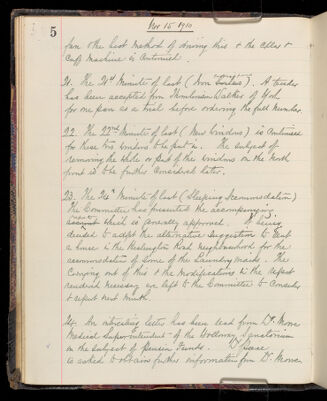 5
Nov 15 1910
for the best method of driving this & the Collar &
Cuff Machine is Continued.
21. The 21st Minute of last (Iron ). A tender
has been accepted from Thomlinson Walker of York
for one pair as a trial before ordering the full number.
22. The 22nd Minute of last (New Windows) is Continued
for these two windows to be put in. The subject of
removing the whole or part of the windows on the North
front is to be further considered later.
23. The 24th Minute of last (Sleeping Accommodation)
The Committee has presented the accompanying
which is already approved. It being
decided to adopt the alternative suggestion to rent
a house in the Heslington Road neighbourhood for the
accommodation of some of the Laundry maids. The
Carrying out of this & the modifications in the
rendered necessary are left to the Committee to Consider
& report next month.
24. An interesting letter has been read from Dr Moore
Medical Superintendent of the Holloway Sanatorium
on the subject of Pension Funds. Dr
is asked to obtain further information from Dr Moore